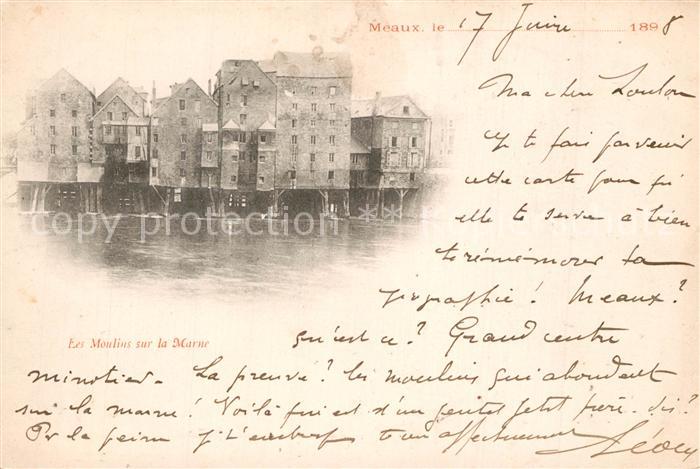 Meaux, le 17 Juin 1898
Ma chère Loulou
Je te fais parvenir
cette carte pour qu'
elle te serve à bien
te remémorer ta
géographie! Meaux?
qu'est ce? Grand centre
minotier. La preuve? les moulins qui abondent
sur la marne! Voilà qui est d'un gentil petit frère. dis?
Pr la peine je t'embrasse ton affectionné
Les Moulins sur la Marne
copy protection ** *** ******